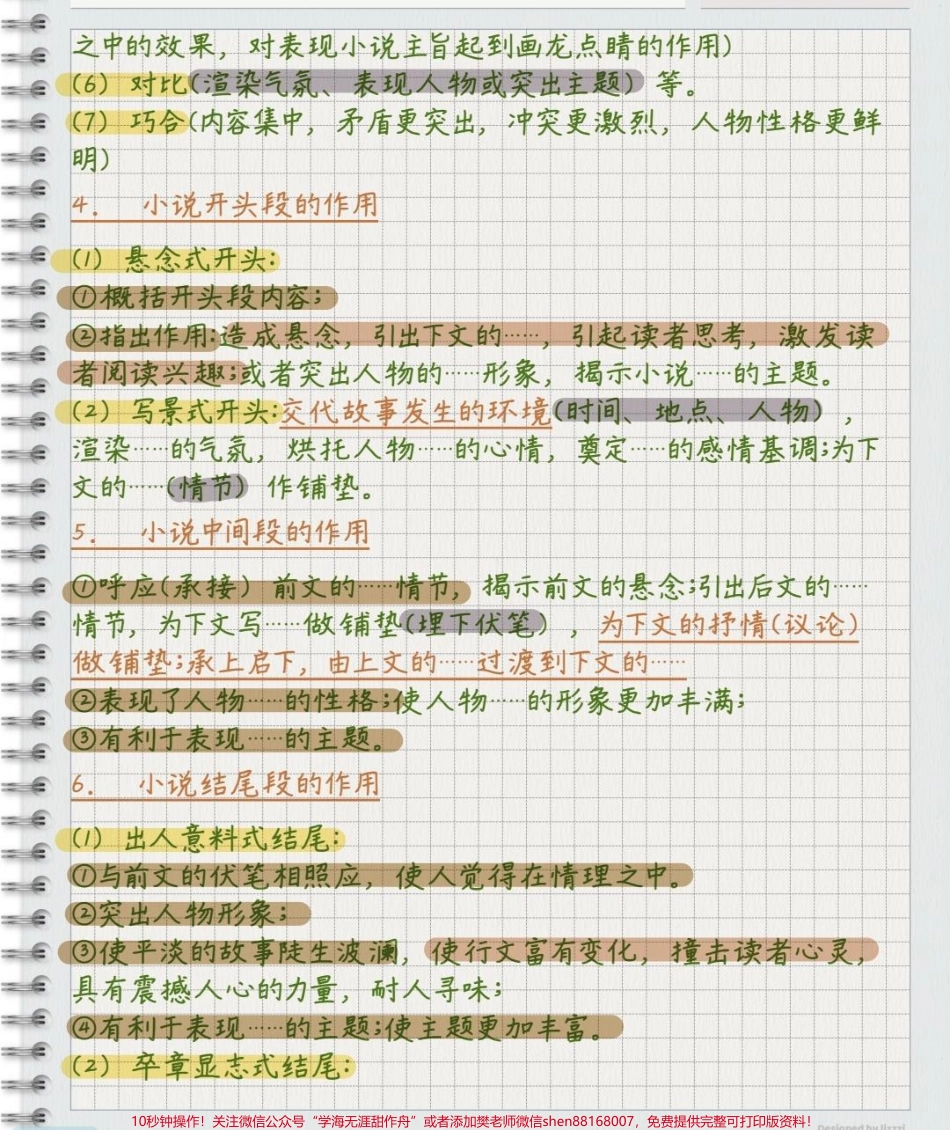 之中的效果，对表现小说主旨起到画龙点睛的作用）
（6）对比（渲染气氛、表现人物或突出主题）等。
（7）巧合（内容集中，矛盾更突出，冲突更激烈，人物性格更鲜
明）
4．　小说开头段的作用
（1）悬念式开头：
①概括开头段内容；
②指出作用：造成悬念，引出下文的……，引起读者思考，激发读
者阅读兴趣；或者突出人物的……形象，揭示小说……的主题。
（2）写景式开头：交代故事发生的环境（时间、地点、人物），
渲染……的气氛，烘托人物……的心情，奠定……的感情基调；为下
文的……（情节）作铺垫。
5．　小说中间段的作用
①呼应（承接）前文的……情节，揭示前文的悬念；引出后文的……
情节，为下文写……做铺垫（埋下伏笔），为下文的抒情（议论）
做铺垫；承上启下，由上文的……过渡到下文的……
②表现了人物……的性格；使人物……的形象更加丰满；
③有利于表现……的主题。
6．　小说结尾段的作用
（1）出人意料式结尾：
①与前文的伏笔相照应，使人觉得在情理之中。
②突出人物形象；
③使平淡的故事陡生波澜，使行文富有变化，撞击读者心灵，
具有震撼人心的力量，耐人寻味；
④有利于表现……的主题；使主题更加丰富。
（2）卒章显志式结尾：
10秒钟操作！关注微信公众号“学海无涯甜作舟”或者添加樊老师微信shen88168007，免费提供完整可打印版资料！
Designed by lizzzi